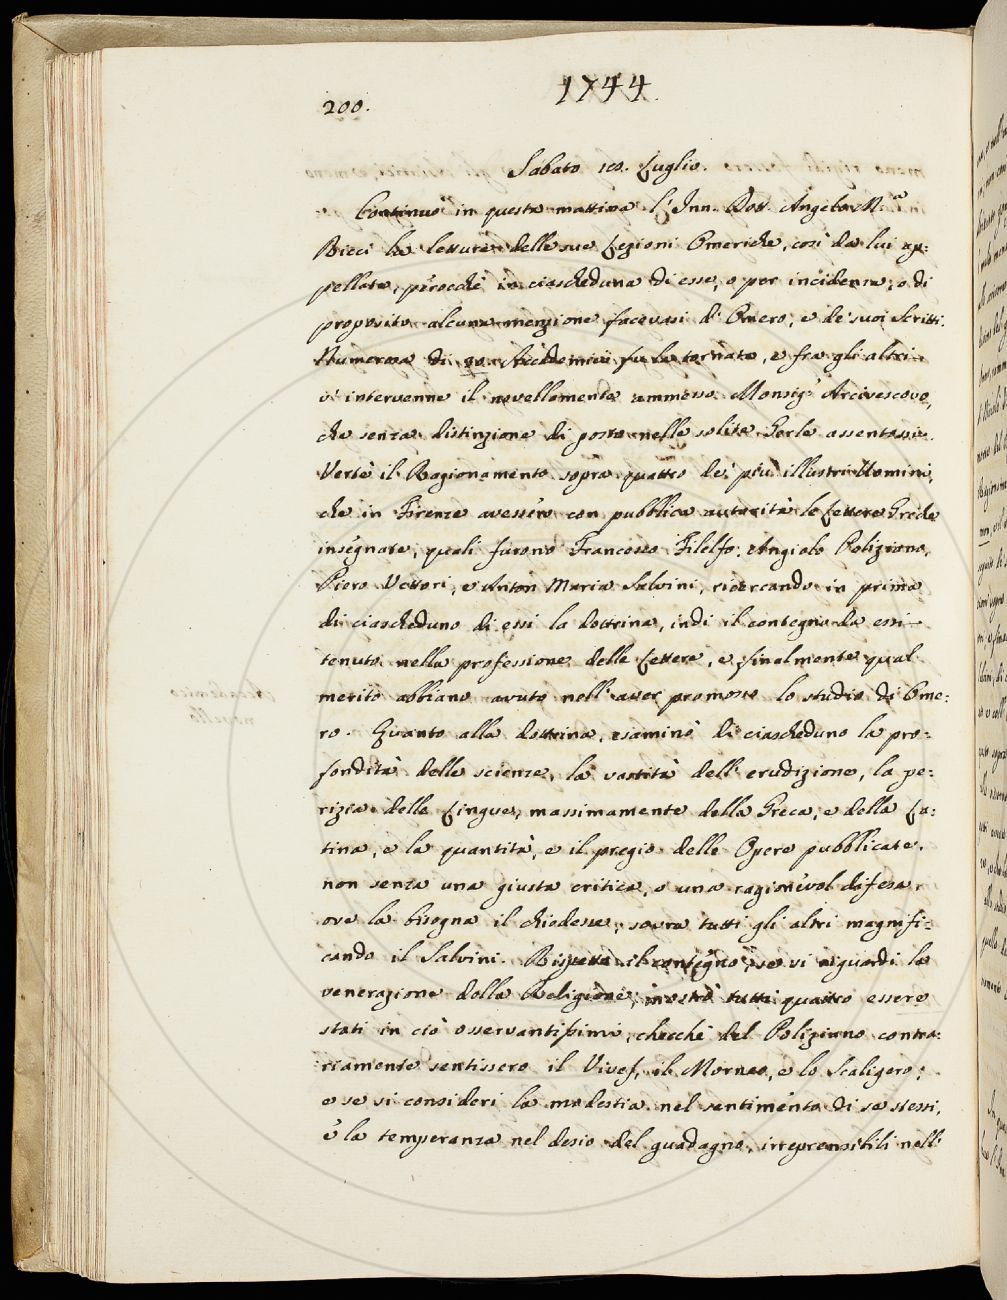 1744
200.
Sabato 10. Luglio.
Continuò in questa mattina l'Inn. Dott. Angelo M.ª
Ricci la lettura delle sue Lezioni Omeriche, così da lui ap:
pellate, perocchè in ciascheduna di esse, o per incidenza, o di
proposito alcuna menzione facevasi d'Omero, e de' suoi scritti.
Numerosa di 30. Accademici fu la tornata, e fra gli altri
v'intervenne il novellamente ammesso Monsig.r Arcivescovo,
che senza distinzione di posto nelle solite Gerle assentossi.
Vertè il Ragionamento sopra quattro de' più illustri Uomini,
che in Firenze avessero con pubblica autorità le Lettere Greche
insegnate, quali furono Francesco Filelfo, Angiolo Poliziano,
Piero Vettori, e Anton Maria Salvini, ricercando in prima
di ciascheduno di essi la dottrina, indi il contegno da essi
tenuto nella professione delle Lettere, e finalmente qual
merito abbiano avuto nell'aver promosso lo studio di Ome:
ro. Quanto alla dottrina, esaminò di ciascheduno la pro:
fondità delle scienze, la vastità dell'erudizione, la pe:
rizia delle Lingue, massimamente della Greca, e della La:
tina, e la quantità, e il pregio delle Opere pubblicate,
non senza una giusta critica, o una ragionevol difesa,
ove la bisogna il chiedesse, sovra tutti gli altri magnifi:
cando il Salvini. Rispetto il contegno, se vi riguardi la
venerazione della Religione, mostrò tutti quattro essere
stati in ciò osservantissimi, checchè del Poliziano contra:
riamente sentissero il Vives, il Morneo, e lo Scaligero;
e se si consideri la modestia nel sentimento di se stessi,
e la temperanza nel desio del guadagno, irreprensibili nell'